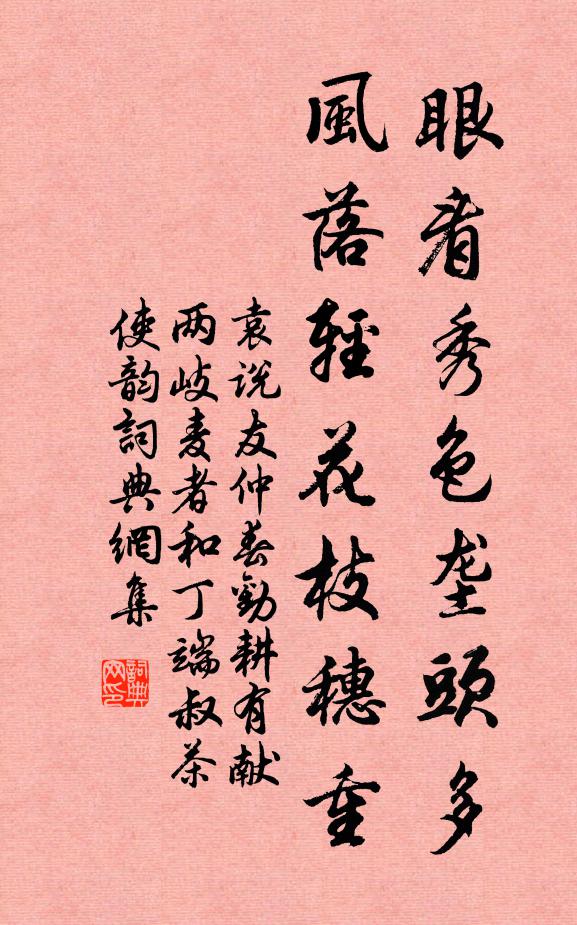 眼看秀色垄頭多
風落輕花枝穗重
袁说友仲春勸耕有献
两岐麦者和丁端叔茶
使韵詞典網集
詞典网印